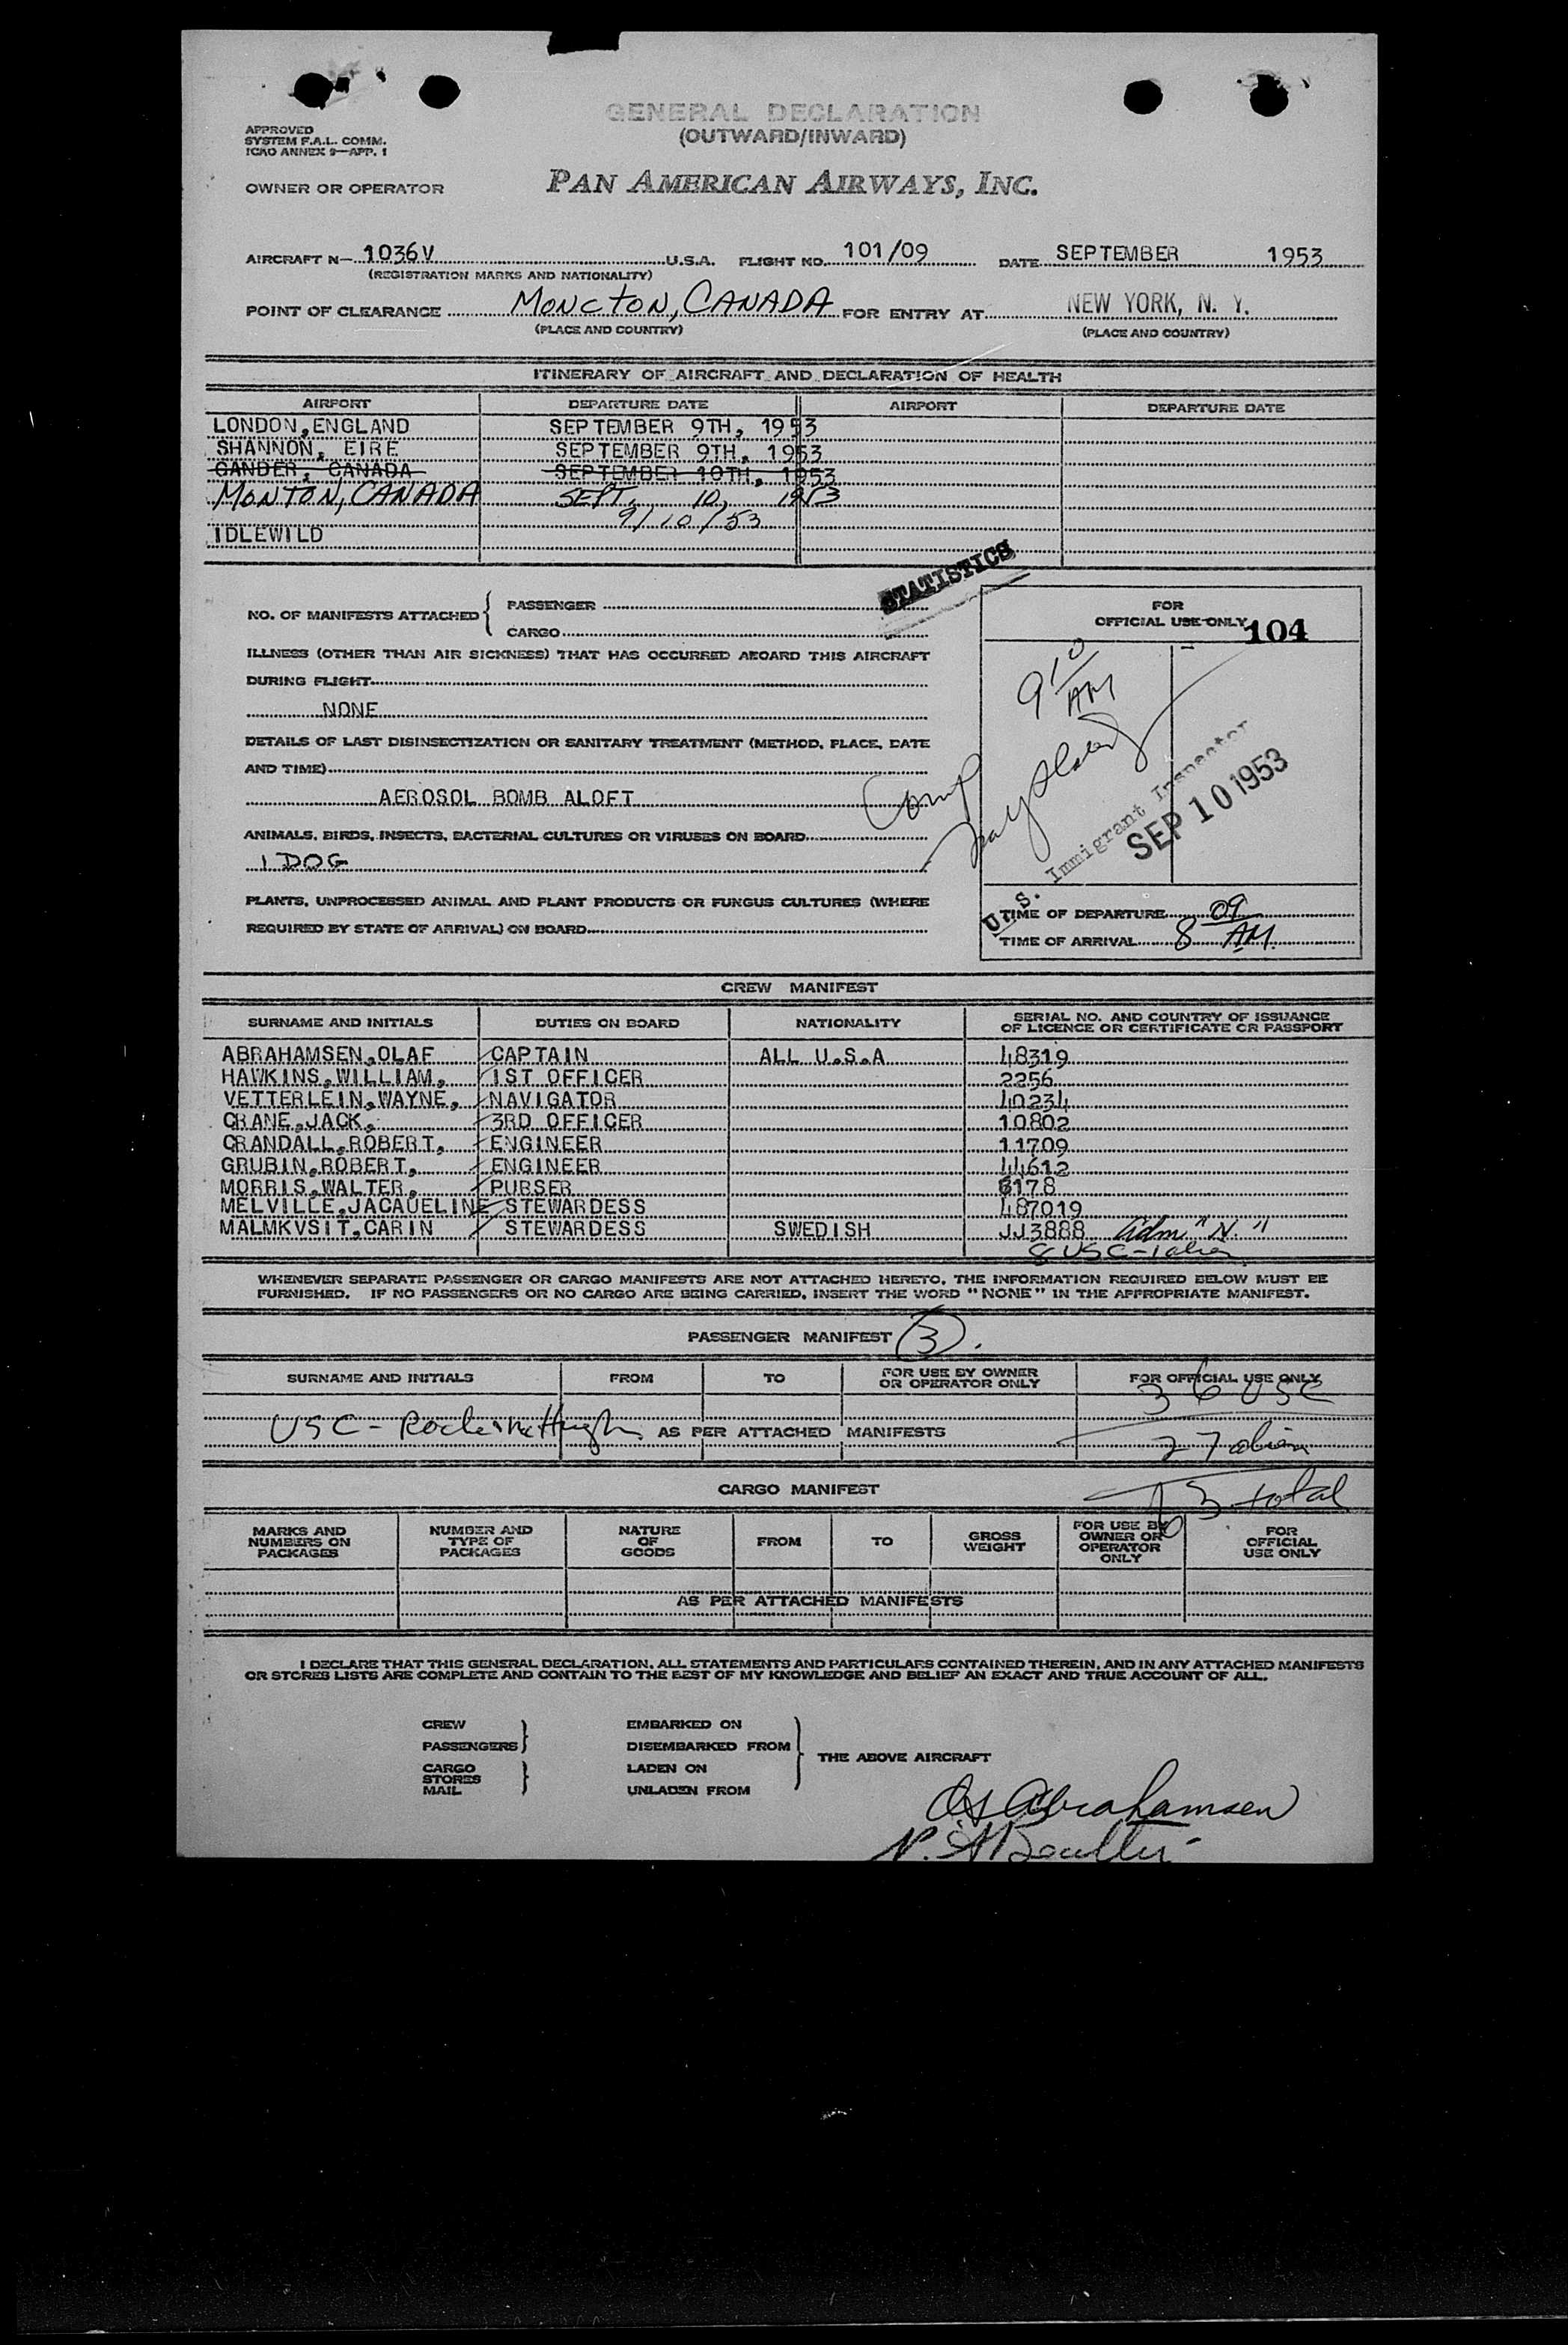 GENERAL DECLARATION
(OUTWARD/INWARD)
APPROVED
SYSTEM F.A.L. COMM.
ICAO ANNEX 9—APP. 1
OWNER OR OPERATOR PAN AMERICAN AIRWAYS, INC.
AIRCRAFT N— 1036V U.S.A. FLIGHT NO. 101/09 DATE SEPTEMBER 1953
(REGISTRATION MARKS AND NATIONALITY)
POINT OF CLEARANCE MONCTON, CANADA FOR ENTRY AT NEW YORK, N. Y.
(PLACE AND COUNTRY) (PLACE AND COUNTRY)
ITINERARY OF AIRCRAFT AND DECLARATION OF HEALTH
AIRPORT DEPARTURE DATE AIRPORT DEPARTURE DATE
LONDON, ENGLAND SEPTEMBER 9TH, 1953
SHANNON, EIRE SEPTEMBER 9TH, 1953
GANDER, CANADA SEPTEMBER 10TH, 1953
MONTON, CANADA SEPT. 10, 1953
9/10/53
IDLEWILD
STATISTICS
NO. OF MANIFESTS ATTACHED { PASSENGER
CARGO
ILLNESS (OTHER THAN AIR SICKNESS) THAT HAS OCCURRED ABOARD THIS AIRCRAFT
DURING FLIGHT
NONE
DETAILS OF LAST DISINSECTIZATION OR SANITARY TREATMENT (METHOD, PLACE, DATE
AND TIME)
AEROSOL BOMB ALOFT
ANIMALS, BIRDS, INSECTS, BACTERIAL CULTURES OR VIRUSES ON BOARD
1 DOG
PLANTS, UNPROCESSED ANIMAL AND PLANT PRODUCTS OR FUNGUS CULTURES (WHERE
REQUIRED BY STATE OF ARRIVAL) ON BOARD
FOR
OFFICIAL USE ONLY 104
9 10 AM
Comp
U. S. Immigrant Inspector
SEP 10 1953
TIME OF DEPARTURE
TIME OF ARRIVAL 8 09 AM.
CREW MANIFEST
SURNAME AND INITIALS DUTIES ON BOARD NATIONALITY SERIAL NO. AND COUNTRY OF ISSUANCE
OF LICENCE OR CERTIFICATE OR PASSPORT
ABRAHAMSEN, OLAF CAPTAIN ALL U.S.A 48319
HAWKINS, WILLIAM, 1ST OFFICER 2256
VETTERLEIN, WAYNE, NAVIGATOR 40234
CRANE, JACK, 3RD OFFICER 10802
CRANDALL, ROBERT, ENGINEER 11709
GRUBIN, ROBERT, ENGINEER 44612
MORRIS, WALTER, PURSER 6178
MELVILLE, JACAUELINE STEWARDESS 487019
MALMKVSIT, CARIN STEWARDESS SWEDISH JJ3888 Adm "N."
8 USC - 1 alien
WHENEVER SEPARATE PASSENGER OR CARGO MANIFESTS ARE NOT ATTACHED HERETO, THE INFORMATION REQUIRED BELOW MUST BE
FURNISHED. IF NO PASSENGERS OR NO CARGO ARE BEING CARRIED, INSERT THE WORD "NONE" IN THE APPROPRIATE MANIFEST.
PASSENGER MANIFEST (3).
SURNAME AND INITIALS FROM TO FOR USE BY OWNER
OR OPERATOR ONLY FOR OFFICIAL USE ONLY
36 USC
USC - AS PER ATTACHED MANIFESTS
27 alien
63 total
CARGO MANIFEST
MARKS AND
NUMBERS ON
PACKAGES NUMBER AND
TYPE OF
PACKAGES NATURE
OF
GOODS FROM TO GROSS
WEIGHT FOR USE BY
OWNER OR
OPERATOR
ONLY FOR
OFFICIAL
USE ONLY
AS PER ATTACHED MANIFESTS
I DECLARE THAT THIS GENERAL DECLARATION, ALL STATEMENTS AND PARTICULARS CONTAINED THEREIN, AND IN ANY ATTACHED MANIFESTS
OR STORES LISTS ARE COMPLETE AND CONTAIN TO THE BEST OF MY KNOWLEDGE AND BELIEF AN EXACT AND TRUE ACCOUNT OF ALL.
CREW EMBARKED ON
PASSENGERS DISEMBARKED FROM THE ABOVE AIRCRAFT
CARGO LADEN ON
STORES
MAIL UNLADEN FROM
Abrahamsen